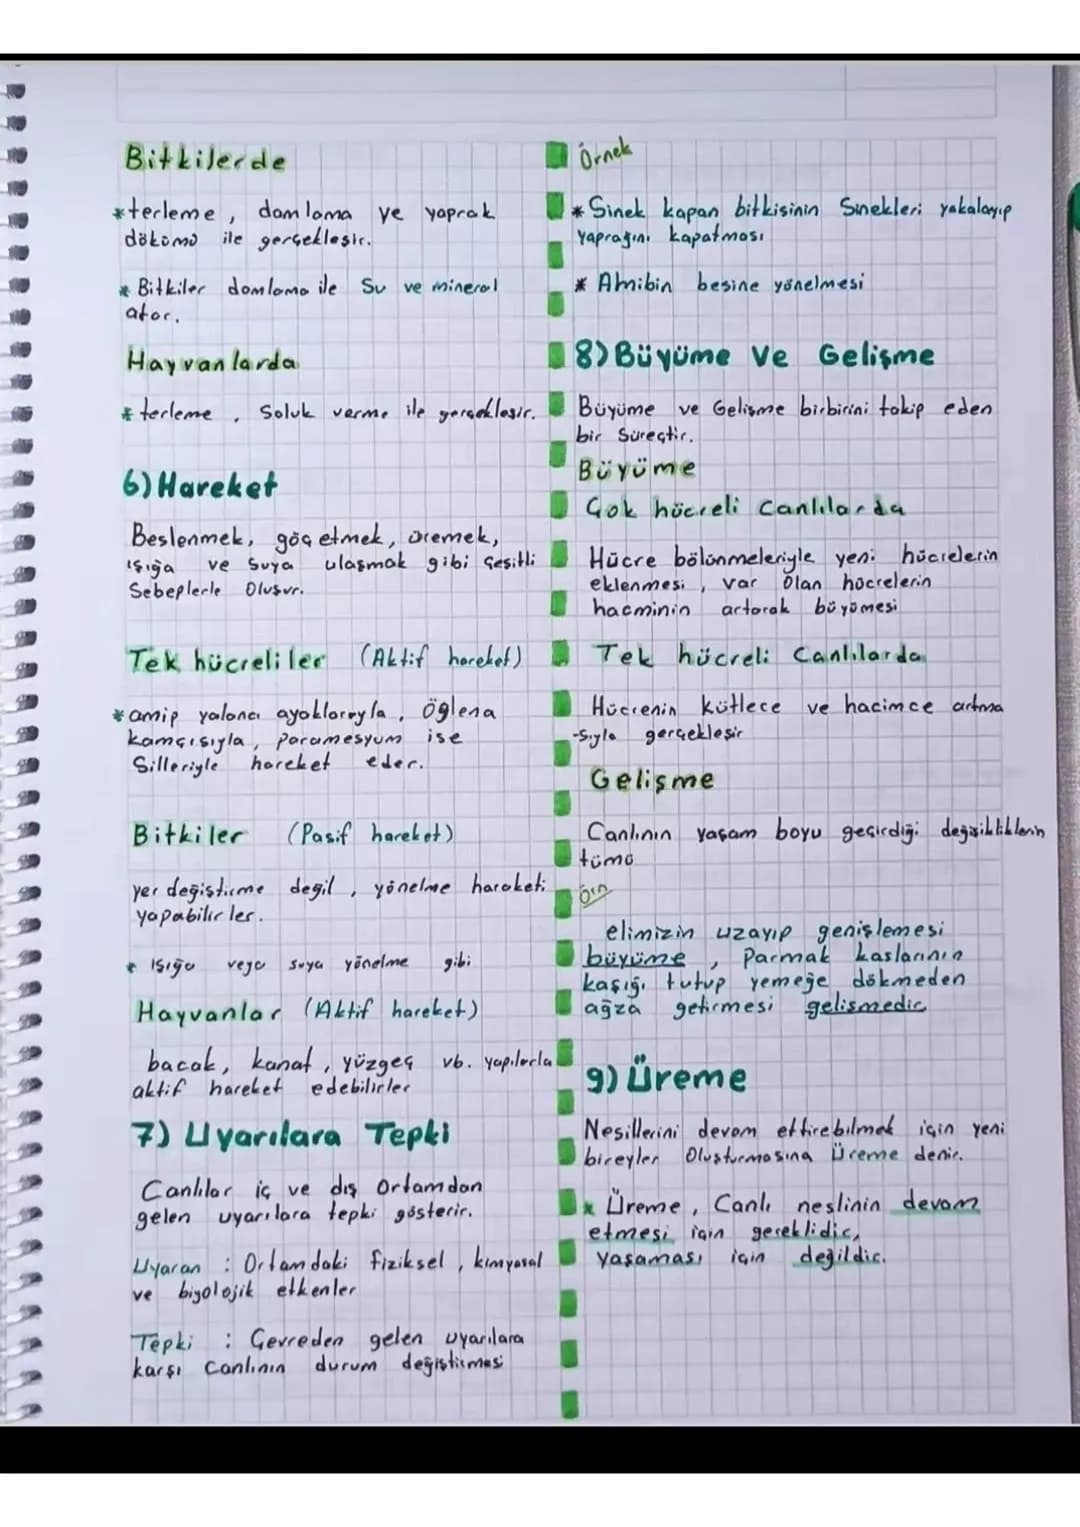 Bitkilerde
*terleme, damlama ve yaprak
dökümü ile gerçekleşir.
* Bitkiler damlama ile Su ve mineral
atar.
Hayvanlarda
* terleme, Soluk verme ile gerçekleşir.
6) Hareket
Beslenmek, göç etmek, üremek,
ışığa ve suya ulaşmak gibi çeşitli
Sebeplerle Oluşur.
Tek hücreliler (Aktif hareket)
*amip yalancı ayaklarıyla, Öglena
kamçısıyla, paramesyum ise
Silleriyle hareket eder.
Bitkiler (Pasif hareket)
yer değiştirme değil, yönelme hareketi
yapabilirler.
* Işığa veya suya yönelme gibi
Hayvanlar (Aktif hareket)
bacak, kanat, yüzgeç vb. yapılarla
aktif hareket edebilirler
7) Uyarılara Tepki
Canlılar iç ve dış Ortamdan
gelen uyarılara tepki gösterir.
Uyaran : Ortamdaki fiziksel, kimyasal
ve biyolojik etkenler
Tepki : Çevreden gelen uyarılara
karşı Canlının durum değiştirmesi
Örnek
* Sinek kapan bitkisinin Sinekleri yakalayıp
yaprağını kapatması
* Amibin besine yönelmesi
8) Büyüme Ve Gelişme
Büyüme ve Gelişme birbirini takip eden
bir Süreçtir.
Büyüme
Çok hücreli Canlılarda
Hücre bölünmeleriyle yeni hücrelerin
eklenmesi, var Olan hücrelerin
hacminin artarak büyümesi
Tek hücreli Canlılarda
Hücrenin kütlece ve hacimce artma
-sıyla gerçekleşir
Gelişme
Canlının yaşam boyu geçirdiği değişikliklerin
tümü
Örn
elimizin uzayıp genişlemesi
büyüme, Parmak kaslarının
kaşığı tutup yemeğe dökmeden
ağza getirmesi gelişmedir
9) Üreme
Nesillerini devam ettirebilmek için yeni
bireyler Oluşturmasına Üreme denir.
* Üreme, Canlı neslinin devam
etmesi için gereklidir,
yaşaması için değildir.